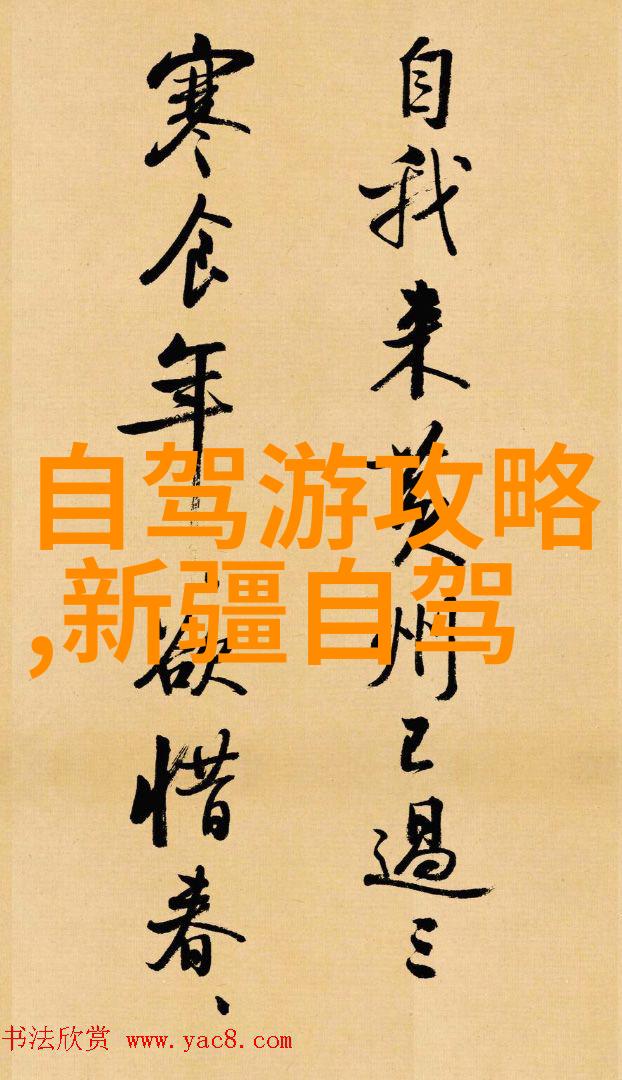 自我来黄州已過三
寒食年〻欲惜春、
自驾游攻略
,新疆自驾
书法欣赏 www.yac8.com